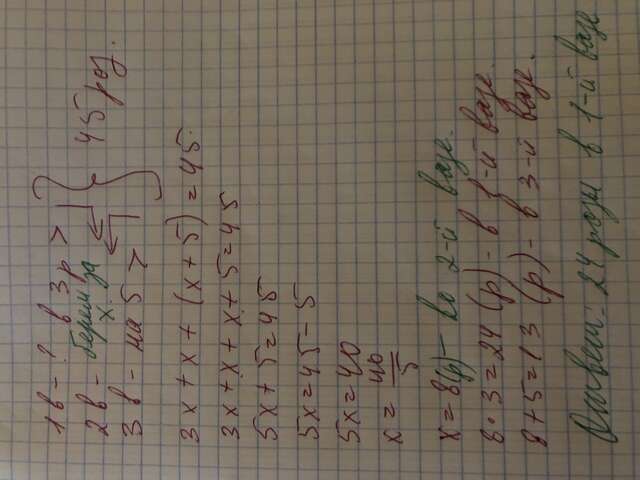 1в - ? в 3р >
2в - берем за х.
3в - на 5 >
45 роз.
3х + х + (х + 5) = 45
3х + х + х + 5 = 45
5х + 5 = 45
5х = 45 - 5
5х = 40
х = 40/5
х = 8(р) - во 2-й вазе.
8 · 3 = 24 (р) - в 1-й вазе.
8 + 5 = 13 (р) - в 3-й вазе.
Ответ: 24 розы в 1-й вазе